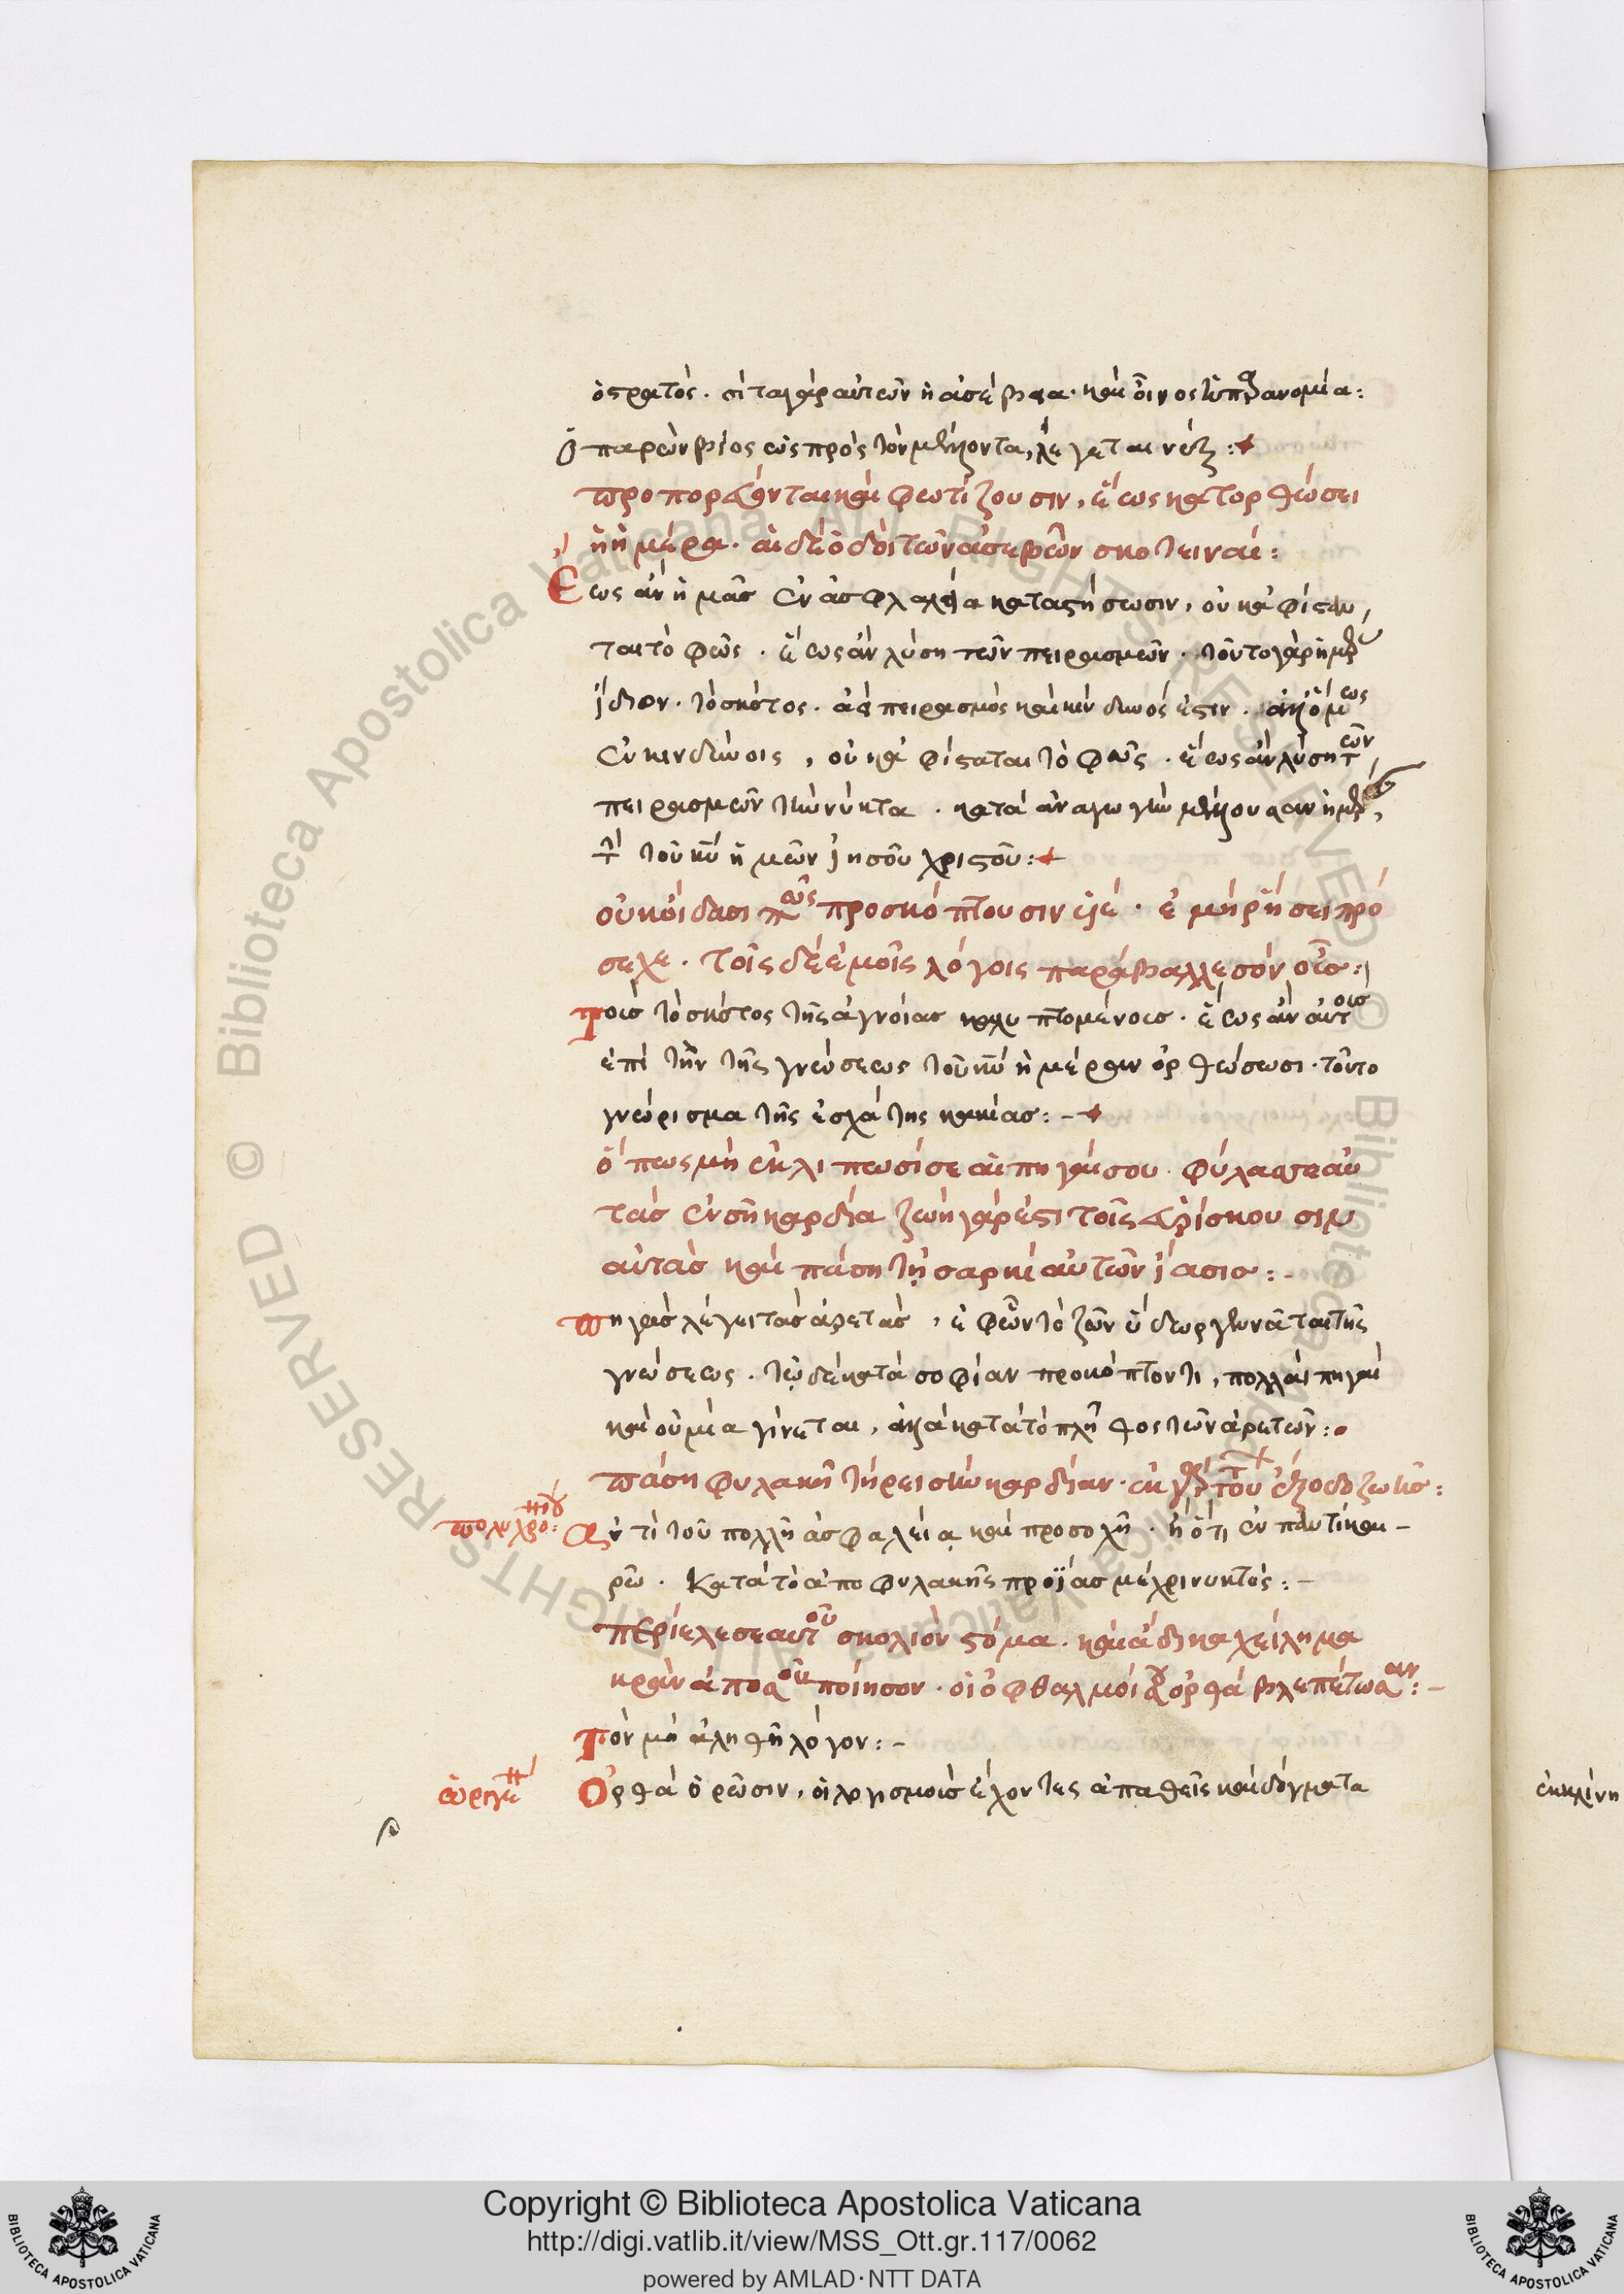 ὁρατὸς. σῖτα γὰρ αὐτῶν ἡ ἀσέβεια· καὶ οἶνος ἡ παρανομία:
Ὁ παρὼν βίος ὡς πρὸς τὸν μέλλοντα, λέγεται νύξ:
προπορεύονται καὶ φωτίζουσιν, ἕως κατορθώσει
ἡ ἡμέρα. αἱ δὲ ὁδοὶ τῶν ἀσεβῶν σκοτειναί:
Ἕως ἂν ἡμᾶς ἐν ἀσφαλεία καταστήσωσιν, οὐκ ἀφίσταν
ται τὸ φῶς. ἕως ἂν λύση τῶν πειρασμῶν. τοῦτο γὰρ ἡμῖν
ἴδιον. τὸ σκότος. πειρασμὸς καὶ κίνδυνός ἐστιν. ὅμως
ἐν κινδύνοις, οὐκ ἀφίσταται τὸ φῶς. ἕως ἂν λύση τῶν
πειρασμῶν τὴν νύκτα. κατὰ ἀναγωγὴν μέλλουσαν ἡμέραν,
τὴν τοῦ κυ ἡμῶν ἰησοῦ χριστοῦ:
οὐκ οἴδασι πῶς προσκόπτουσιν υἱέ. ἐμῆ ῥήσει πρό
σεχε. τοῖς δὲ ἐμοῖς λόγοις παράβαλλε σὸν οὖς:
Τοῖς τὸ σκότος τῆς ἀγνοίας καλυπτομένοις. ἕως ἂν αὐτοῖς
ἐπὶ τὴν τῆς γνώσεως τοῦ κυ ἡμέραν ὀρθώσωσι. τοῦτο
γνώρισμα τῆς ἐσχάτης κακίας:
ὅπως μὴ ἐκλίπωσί σε αἱ πηγαί σου. φύλασσε αὐ
τὰς ἐν σῆ καρδία ζωὴ γάρ ἐστι τοῖς εὑρίσκουσιν
αὐτὰς καὶ πάση τῇ σαρκὶ αὐτῶν ἴασις:
Πηγὰς λέγει τὰς ἀρετὰς, ἐφ' ὧν τὸ ζῶν ὕδωρ γεννᾶται τῆς
γνώσεως. τῷ δὲ κατὰ σοφίαν προκόπτοντι, πολλαὶ πηγαὶ
καὶ οὐ μία γίνεται, ἀλλὰ κατὰ τὸ πλῆθος τῶν ἀρετῶν:
Πάση φυλακῆ τήρει σὴν καρδίαν. ἐκ γὰρ τούτων ἔξοδοι ζωῆς:
πολυχρονίου: Ἀντὶ τοῦ πολλῆ ἀσφαλεία καὶ προσοχῆ. ἢ ὅτι ἐν παντὶ και
ρῶ. κατὰ τὸ ἀπο φυλακῆς πρωΐας μέχρι νυκτός:
περίελε σεαυτοῦ σκολιὸν στόμα. καὶ ἄδικα χείλη μα
κρὰν ἀπὸ σοῦ ποίησον. οἱ ὀφθαλμοί σου ὀρθὰ βλεπέτωσαν:
Τὸν μὴ ἀληθῆ λόγον:
ὠριγένης Ὀρθὰ ὁρῶσιν, οἱ λογισμοὺς ἔχοντες ἀπαθεῖς καὶ δόγματα
ἐκκλίνη
Copyright © Biblioteca Apostolica Vaticana
http://digi.vatlib.it/view/MSS_Ott.gr.117/0062
powered by AMLAD·NTT DATA